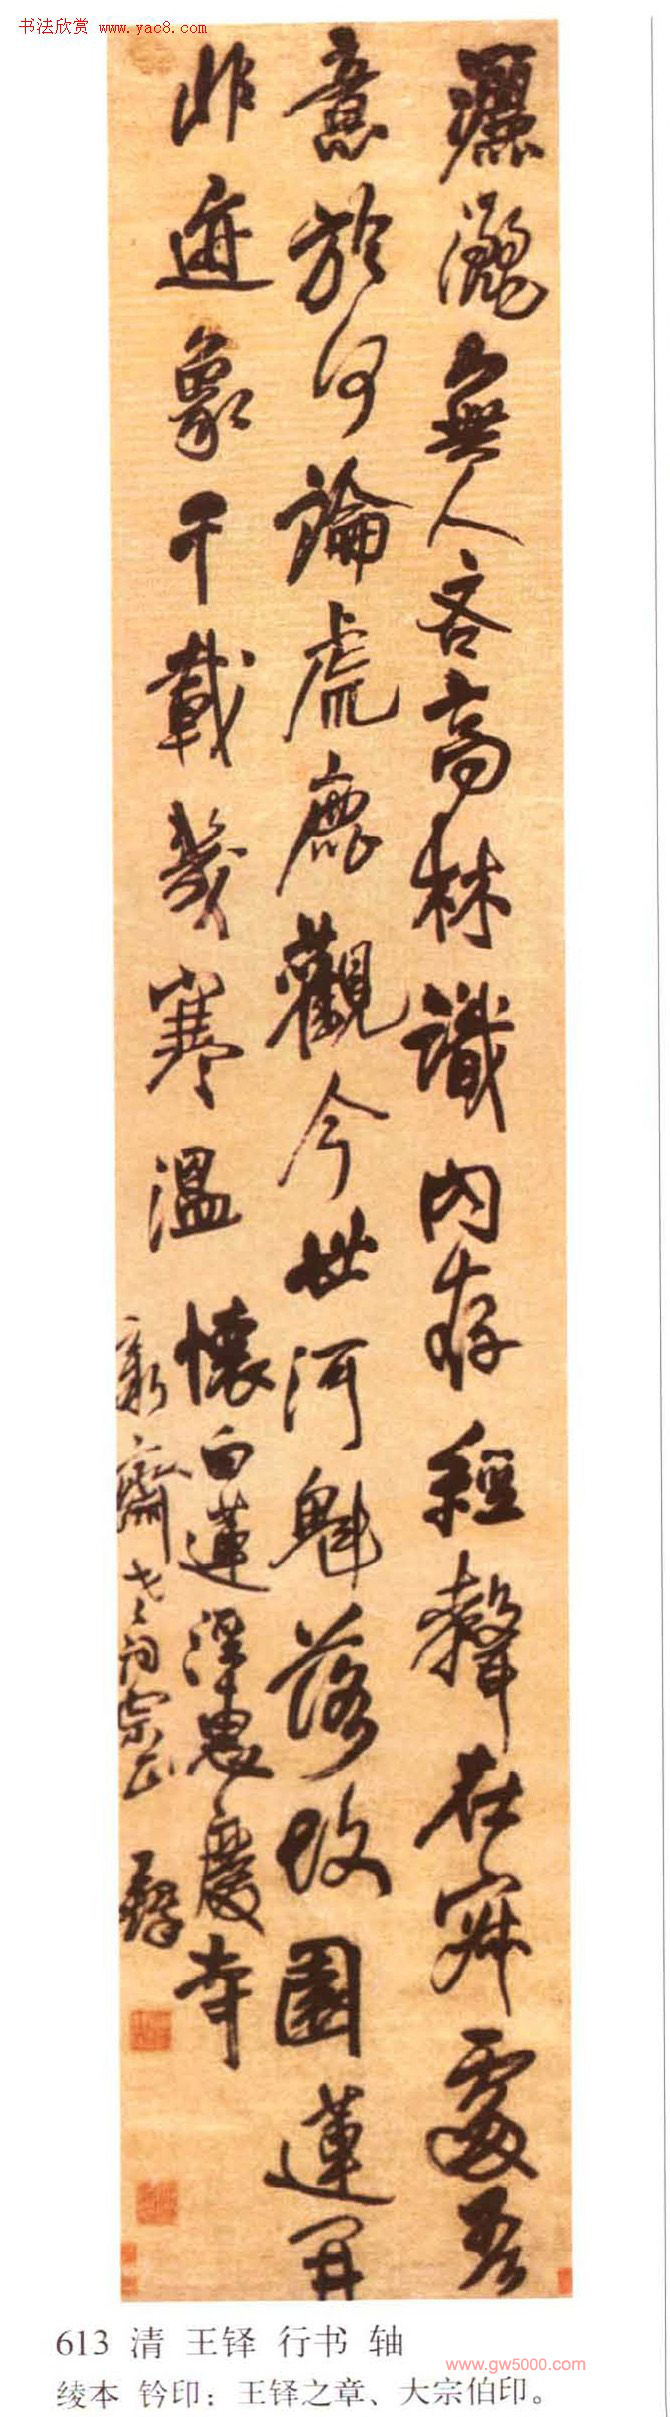 书法欣赏 www.yac8.com
灑灑無人吝高林識內存經聲在寂處吾
意於何論虎鹿觀今世河魁落故園蓮開
非迹象千載幾寒溫
懷白蓮惠慶寺
新齋老詞宗正 王鐸
613 清 王铎 行书 轴
www.gw5000.com
绫本 钤印：王铎之章、大宗伯印。